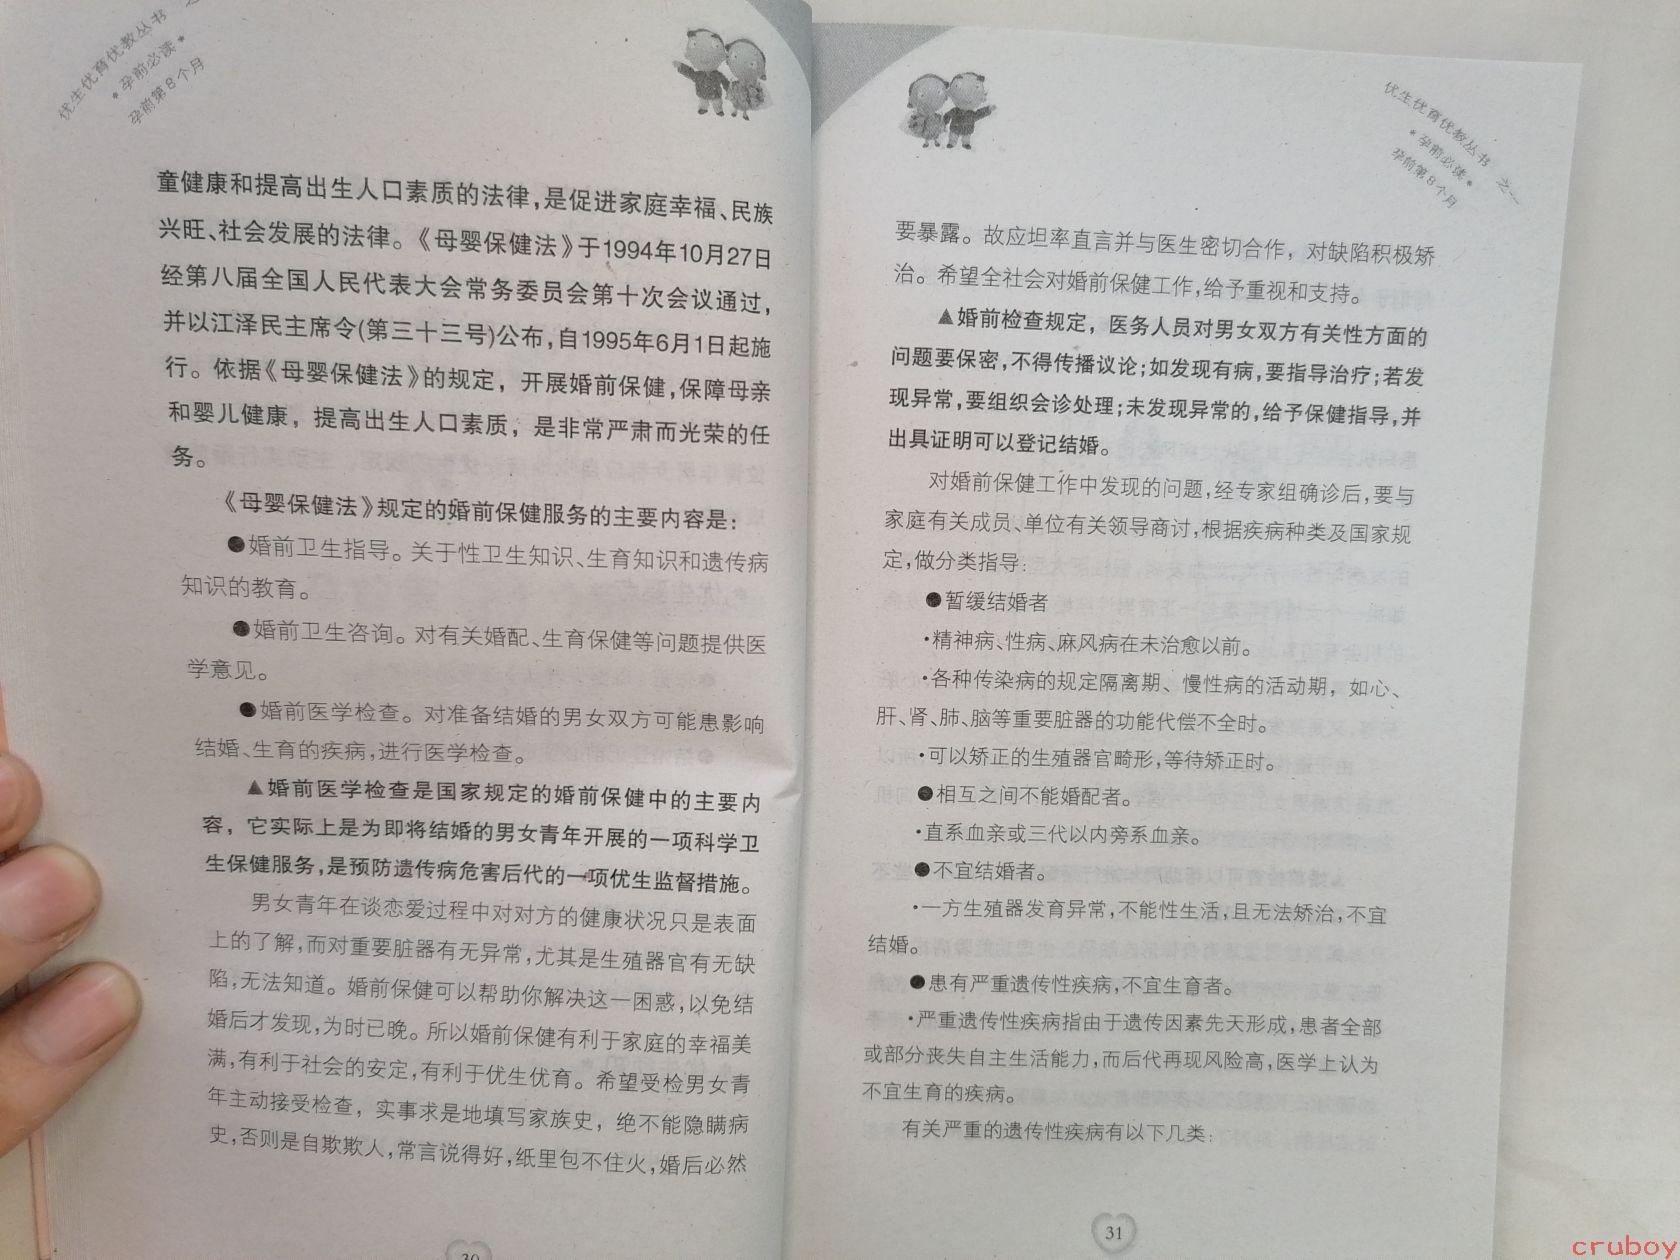 优生优育优教丛书 之
*孕前必读*
孕前第8个月
童健康和提高出生人口素质的法律,是促进家庭幸福、民族
兴旺、社会发展的法律。《母婴保健法》于1994年10月27日
经第八届全国人民代表大会常务委员会第十次会议通过,
并以江泽民主席令(第三十三号)公布,自1995年6月1日起施
行。依据《母婴保健法》的规定,开展婚前保健,保障母亲
和婴儿健康,提高出生人口素质,是非常严肃而光荣的任
务。
《母婴保健法》规定的婚前保健服务的主要内容是:
●婚前卫生指导。关于性卫生知识、生育知识和遗传病
知识的教育。
●婚前卫生咨询。对有关婚配、生育保健等问题提供医
学意见。
●婚前医学检查。对准备结婚的男女双方可能患影响
结婚、生育的疾病,进行医学检查。
▲婚前医学检查是国家规定的婚前保健中的主要内
容,它实际上是为即将结婚的男女青年开展的一项科学卫
生保健服务,是预防遗传病危害后代的一项优生监督措施。
男女青年在谈恋爱过程中对对方的健康状况只是表面
上的了解,而对重要脏器有无异常,尤其是生殖器官有无缺
陷,无法知道。婚前保健可以帮助你解决这一困惑,以免结
婚后才发现,为时已晚。所以婚前保健有利于家庭的幸福美
满,有利于社会的安定,有利于优生优育。希望受检男女青
年主动接受检查,实事求是地填写家族史,绝不能隐瞒病
史,否则是自欺欺人,常言说得好,纸里包不住火,婚后必然
30
优生优育优教丛书 之一
*孕前必读*
孕前第8个月
要暴露。故应坦率直言并与医生密切合作,对缺陷积极矫
治。希望全社会对婚前保健工作,给予重视和支持。
▲婚前检查规定,医务人员对男女双方有关性方面的
问题要保密,不得传播议论;如发现有病,要指导治疗;若发
现异常,要组织会诊处理;未发现异常的,给予保健指导,并
出具证明可以登记结婚。
对婚前保健工作中发现的问题,经专家组确诊后,要与
家庭有关成员、单位有关领导商讨,根据疾病种类及国家规
定,做分类指导:
●暂缓结婚者
·精神病、性病、麻风病在未治愈以前。
·各种传染病的规定隔离期、慢性病的活动期,如心、
肝、肾、肺、脑等重要脏器的功能代偿不全时。
·可以矫正的生殖器官畸形,等待矫正时。
●相互之间不能婚配者。
·直系血亲或三代以内旁系血亲。
●不宜结婚者。
·一方生殖器发育异常,不能性生活,且无法矫治,不宜
结婚。
●患有严重遗传性疾病,不宜生育者。
·严重遗传性疾病指由于遗传因素先天形成,患者全部
或部分丧失自主生活能力,而后代再现风险高,医学上认为
不宜生育的疾病。
有关严重的遗传性疾病有以下几类:
31
cruboy